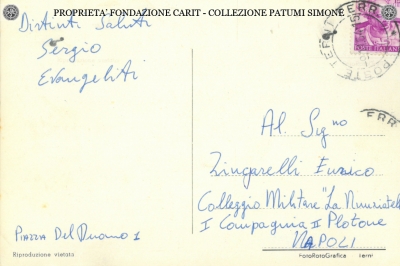 PROPRIETA' FONDAZIONE CARIT - COLLEZIONE PATUMI SIMONE
Distinti Saluti
Sergio
Evangeliti
POSTE ITALIANE
Al Sig.no
Zingarelli Enrico
Colleggio Militare "La Nunziatel
I Compagnia II Plotone
NAPOLI
PIAZZA Del Duomo 1
Riproduzione vietata
FotoRotoGrafica Terni